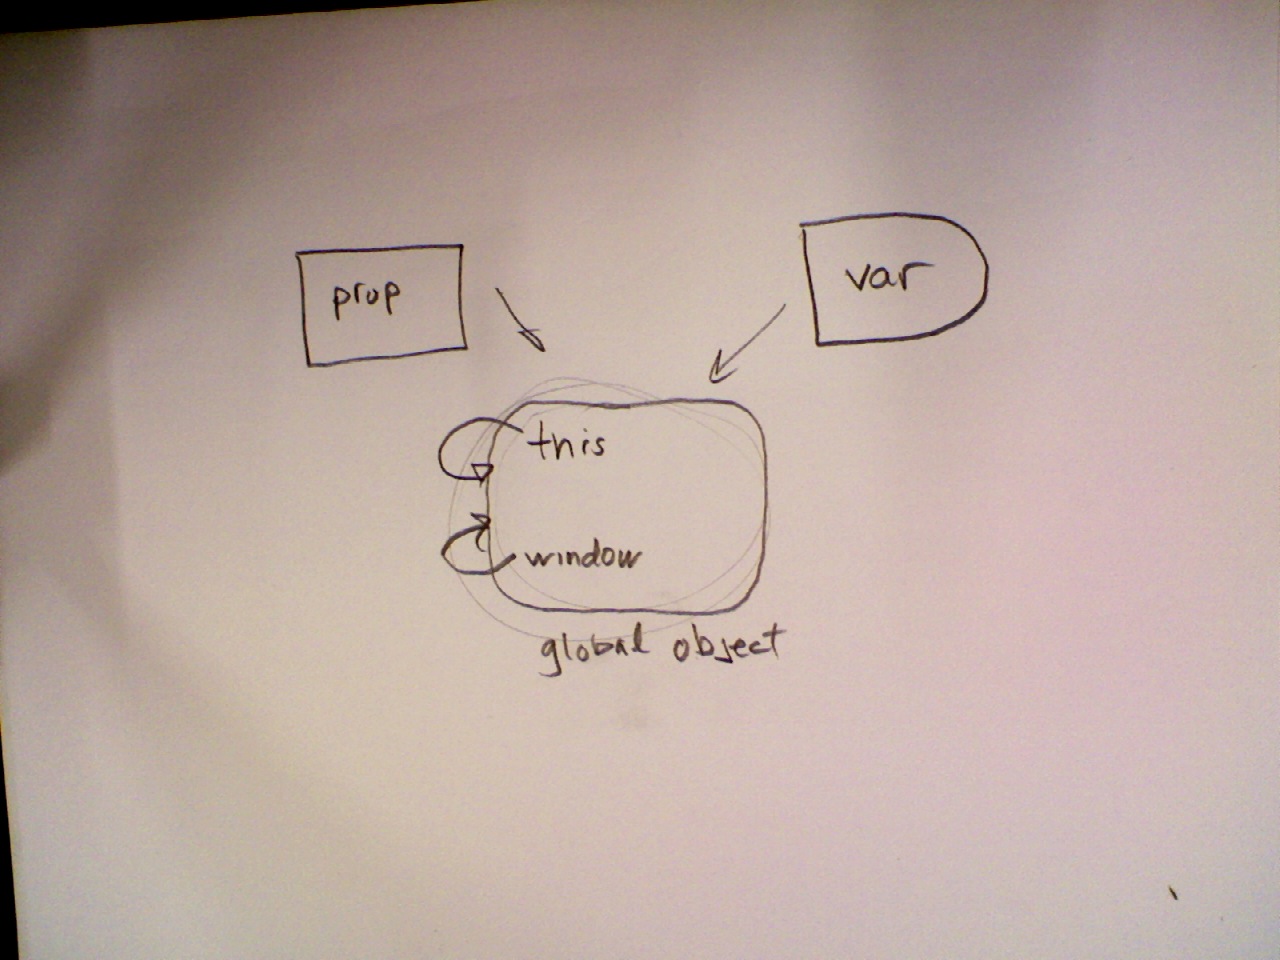 prop
var
this
window
global object